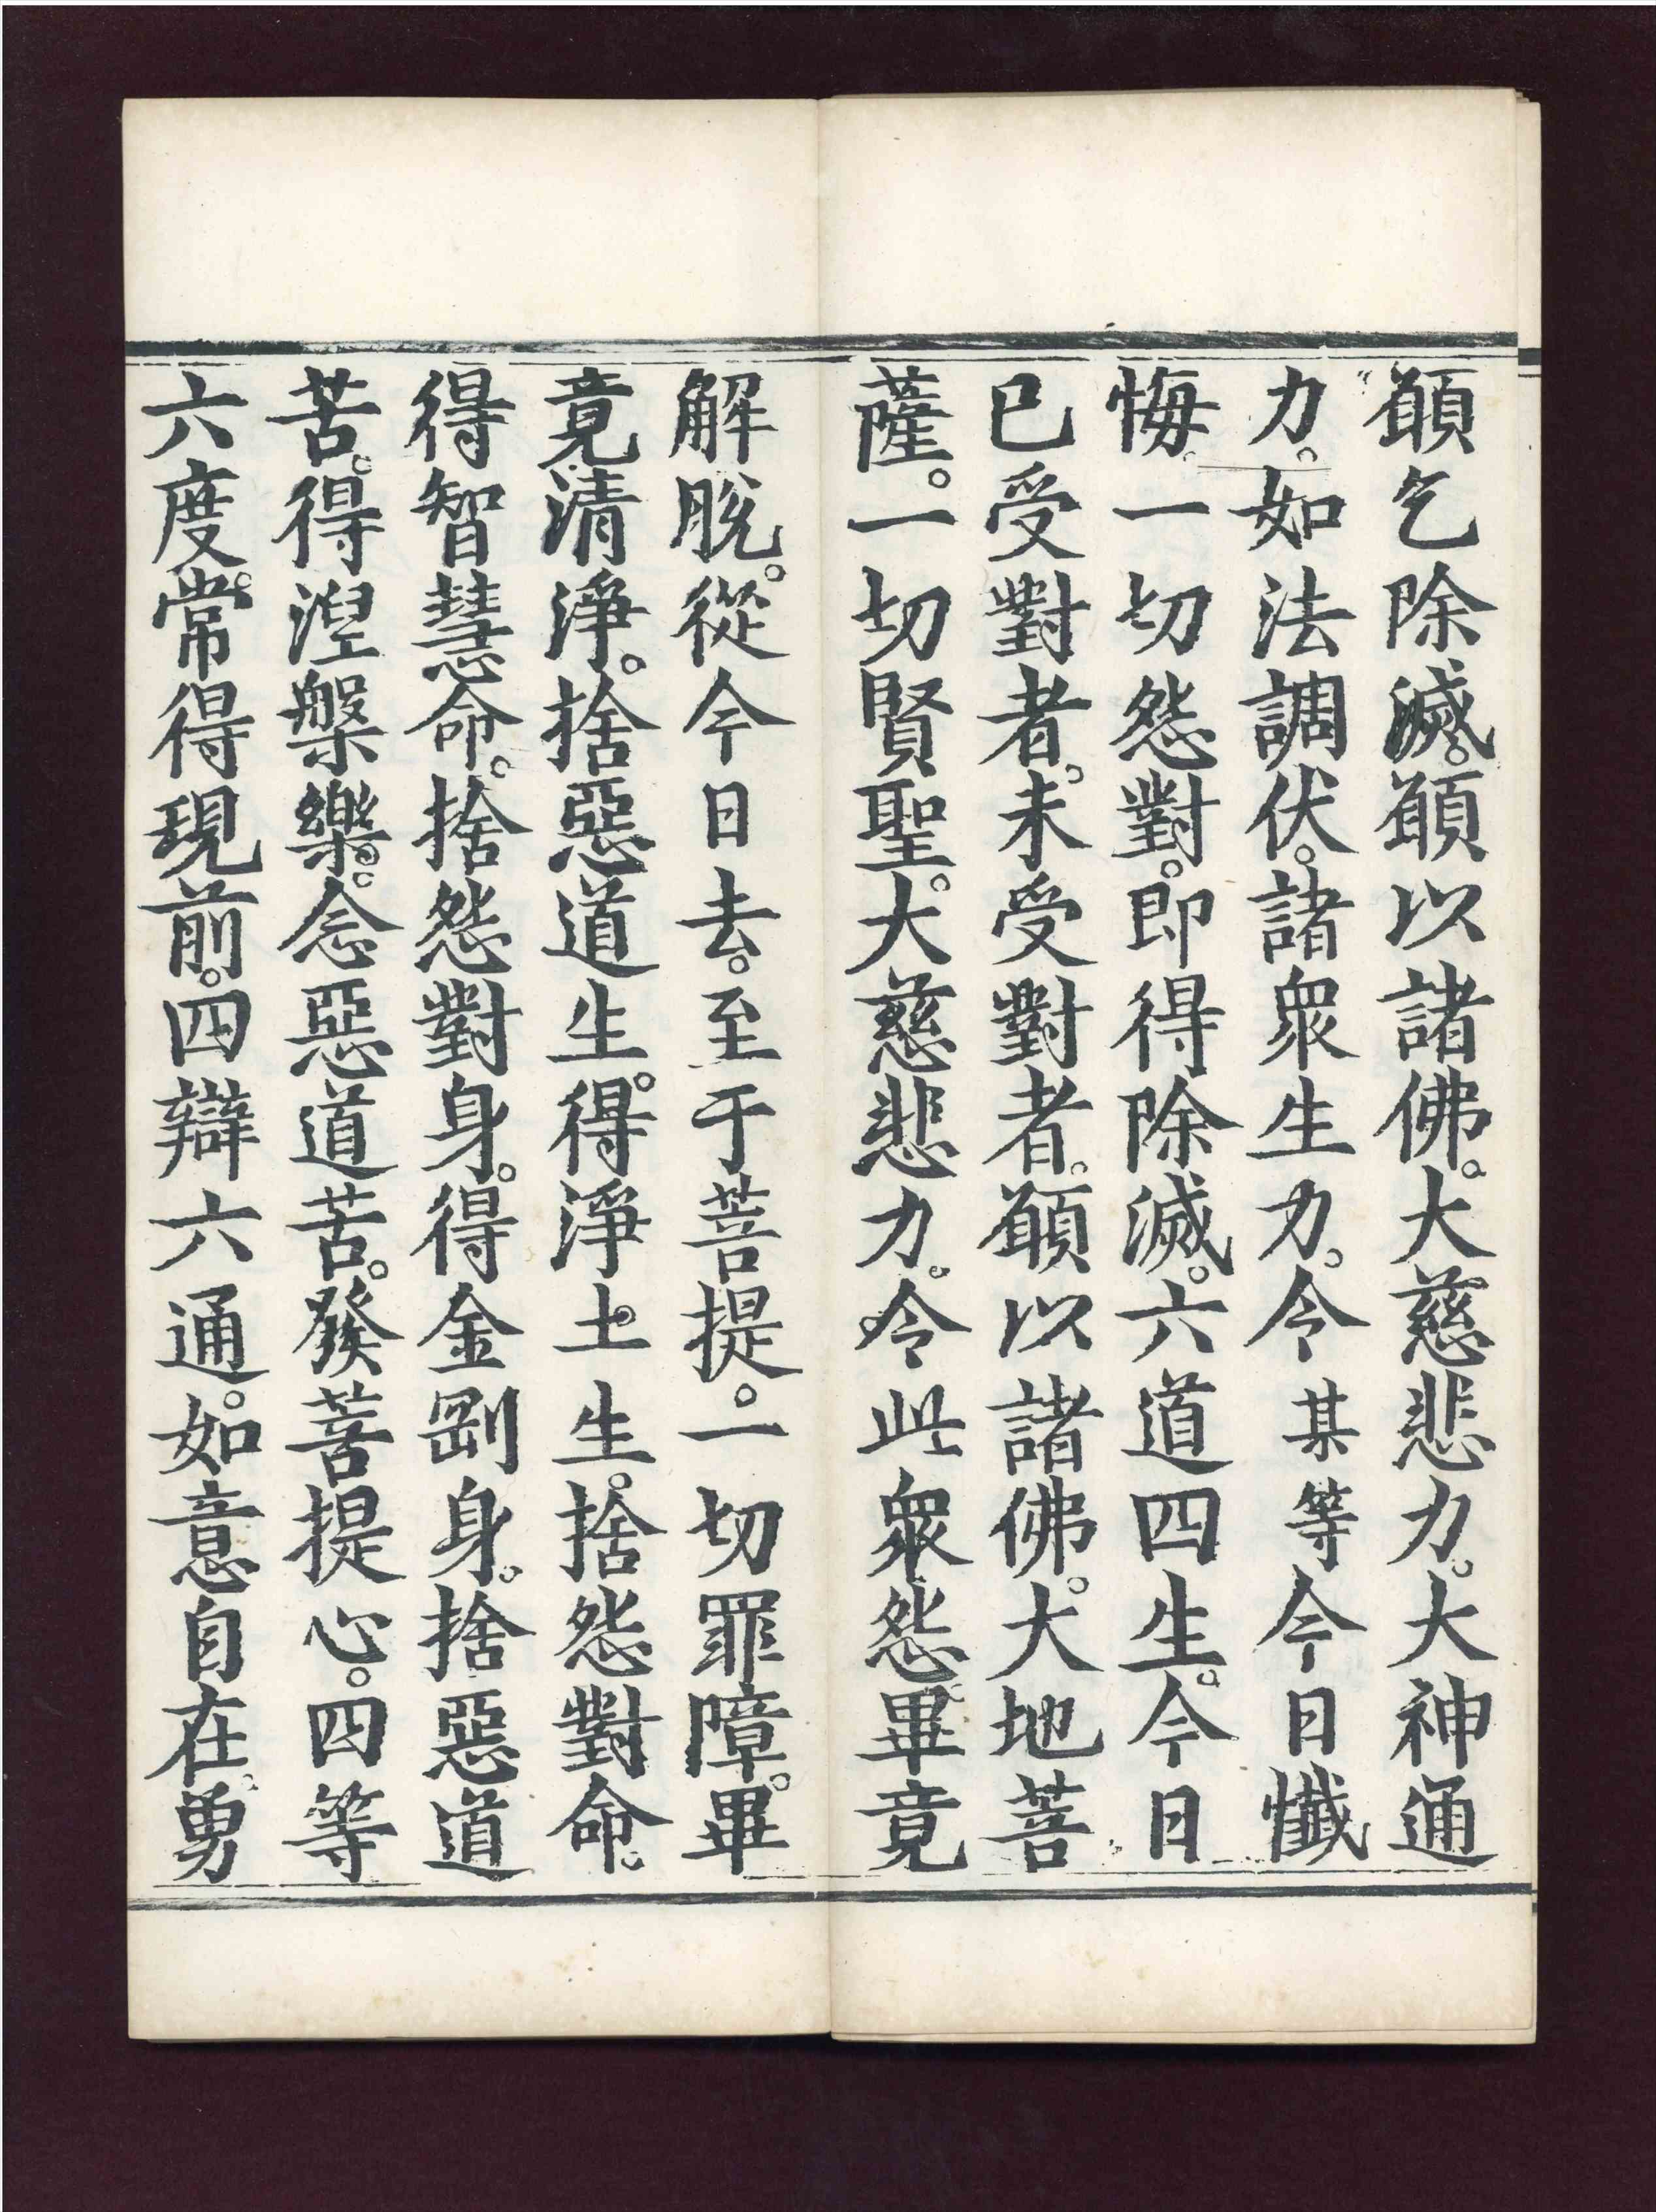 願乞除滅。願以諸佛。大慈悲力。大神通
力。如法調伏。諸衆生力。令某等今日懺
悔。一切怨對。即得除滅。六道四生。今日
已受對者。未受對者。願以諸佛。大地菩
薩。一切賢聖。大慈悲力。令此衆怨畢竟
解脫。從今日去。至于菩提。一切罪障。畢
竟清淨。捨惡道生。得淨土生。捨怨對命。
得智慧命。捨怨對身。得金剛身。捨惡道
苦。得涅槃樂。念惡道苦。發菩提心。四等
六度。常得現前。四辯六通。如意自在。勇